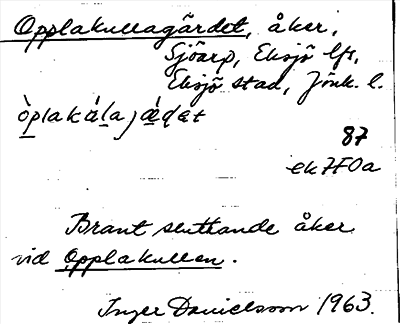 Opplakullagärdet, åker,
Sjöarp, Eksjö lfs,
Eksjö stad, Jönk. l.
òplakúlajǽḍet
87
ek7F0a
Brant sluttande åker
vid Opplakullen.
Inger Danielsson 1963.